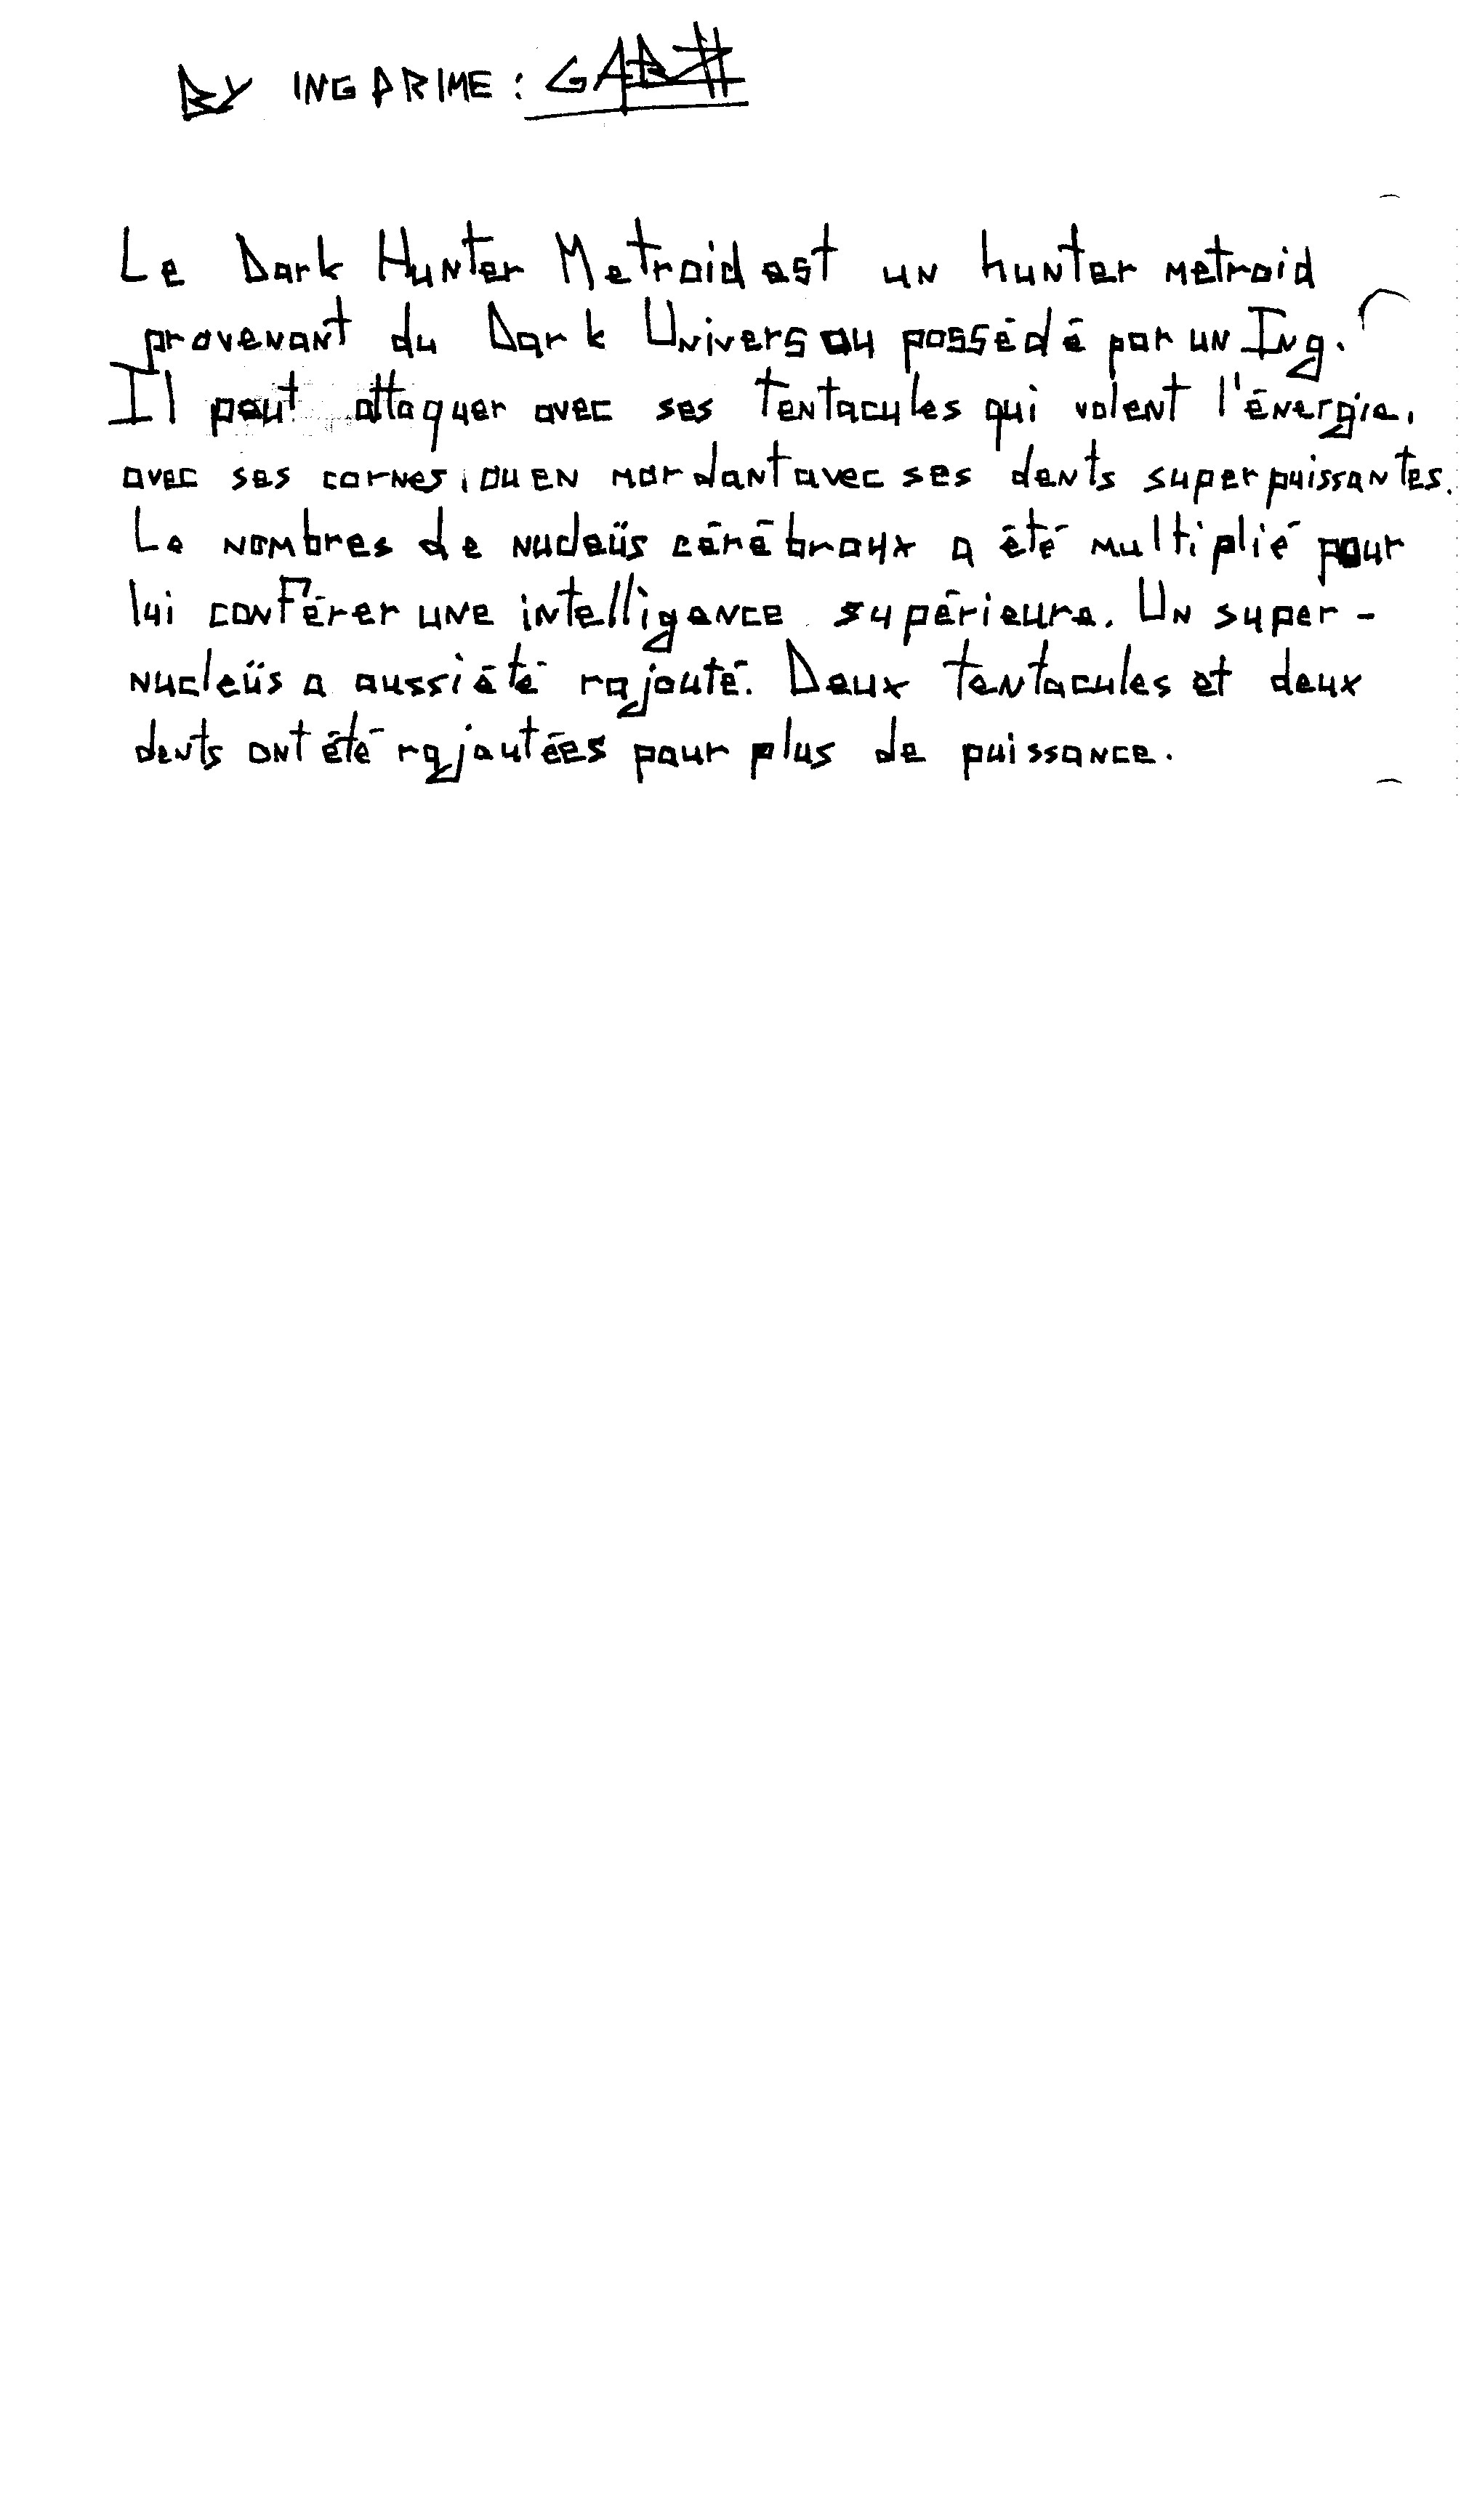 BY ING PRIME : GAB#
Le Dark Hunter Metroid est un hunter metroid
provenant du Dark Univers ou possédé par un Ing.
Il peut attaquer avec ses tentacules qui volent l'énergie,
avec ses cornes, ou en mordant avec ses dents superpuissantes.
Le nombres de nucleüs cérébraux a été multiplié pour
lui conférer une intelligence supérieure. Un super-
nucleüs a aussi été rajouté. Deux tentacules et deux
dents ont été rajoutées pour plus de puissance.